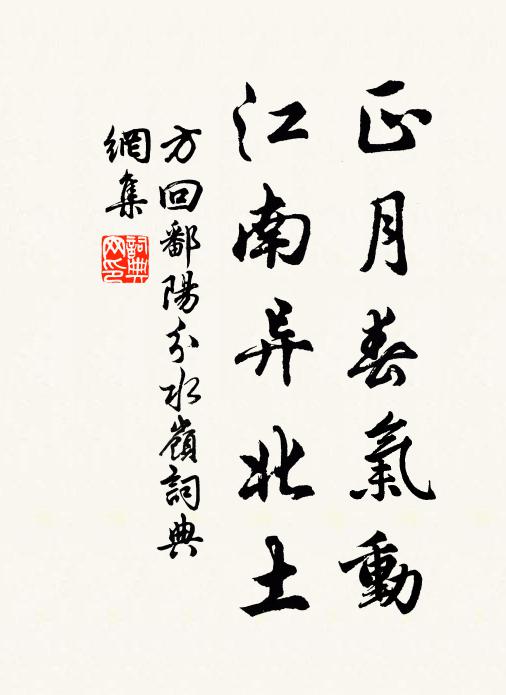 正月春氣動
江南异北土
方回鄱陽分水嶺詞典
網集
詞典网印